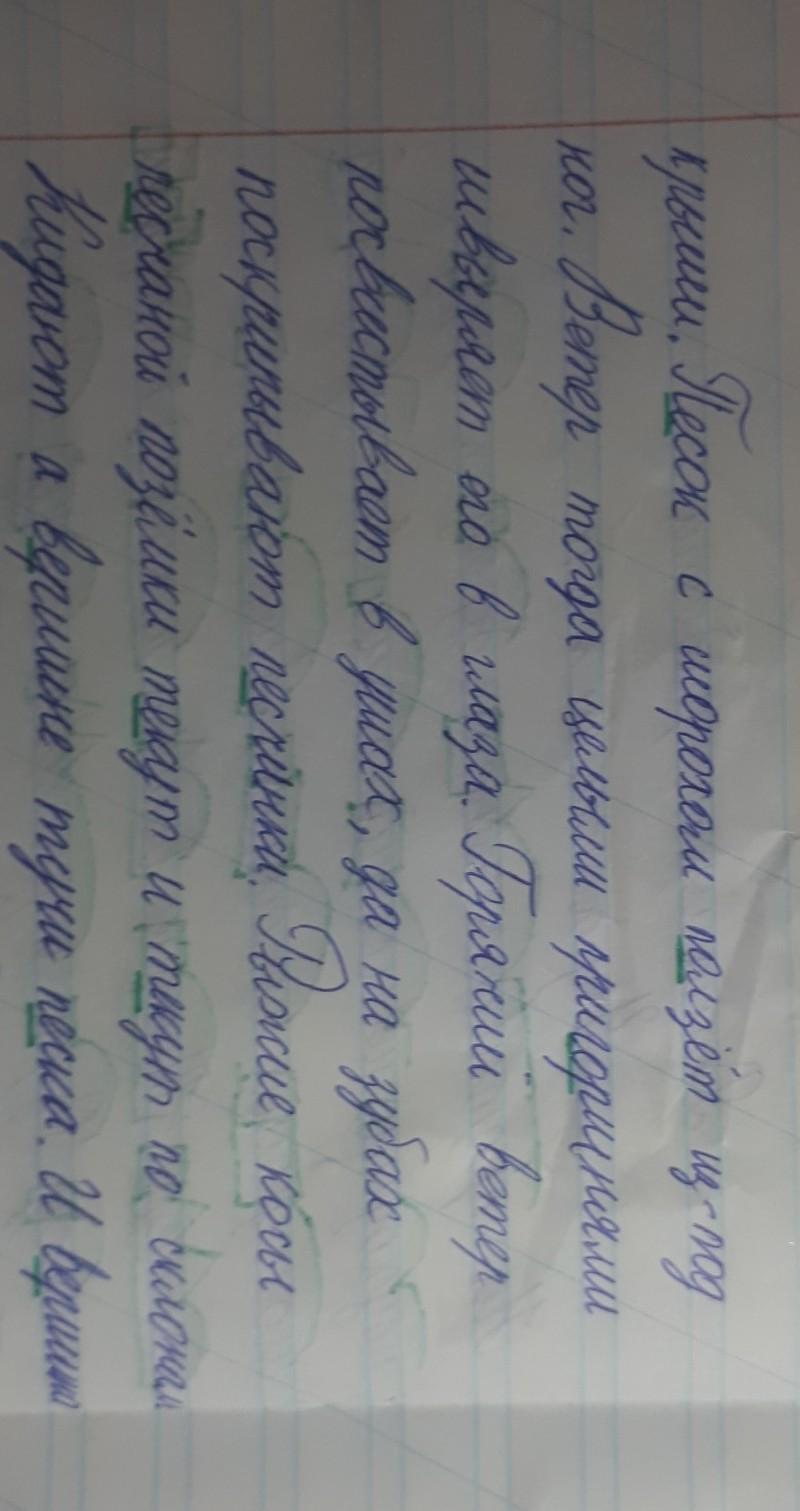 крыши. Песок с шорохом ползёт из-под
ног. Ветер тогда целыми пригоршнями
швыряет его в глаза. Горячий ветер
посвистывает в ушах, да на зубах
поскрипывают песчинки. Рыжие косы
песчаной позёмки текут и текут по склонам
Кидают к вершине тучи песка. И вершина